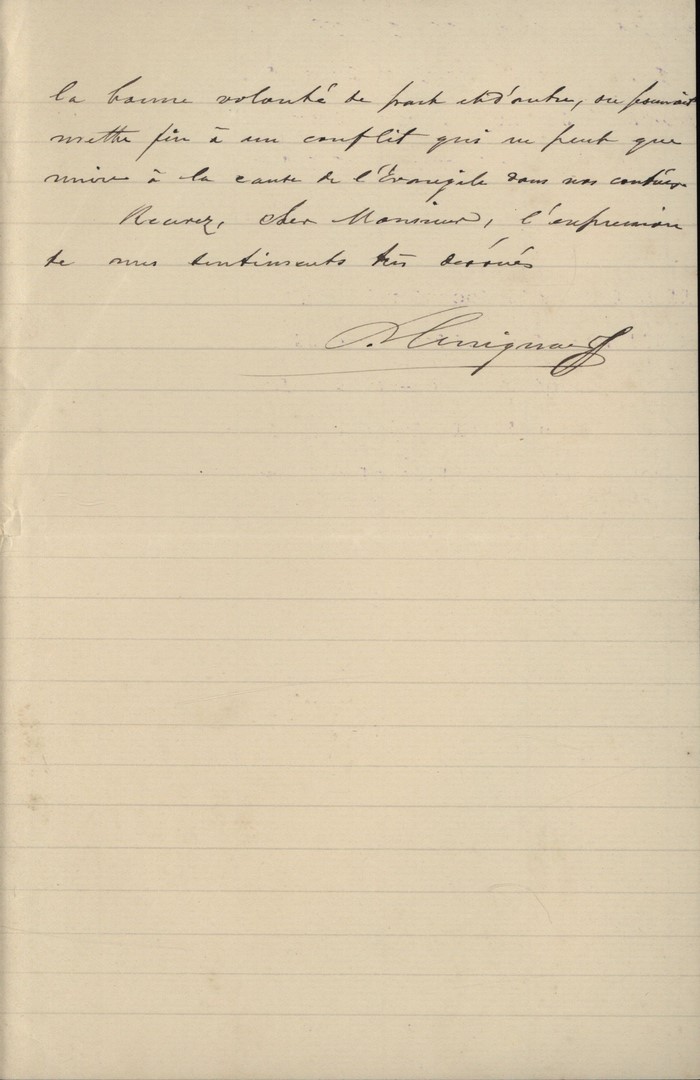 la bonne volonté de part et d'autre, on pourrait
mettre fin à un conflit qui ne peut que
nuire à la cause de l'Évangile dans nos contrées.
Recevez, cher Monsieur, l'expression
de mes sentiments très dévoués